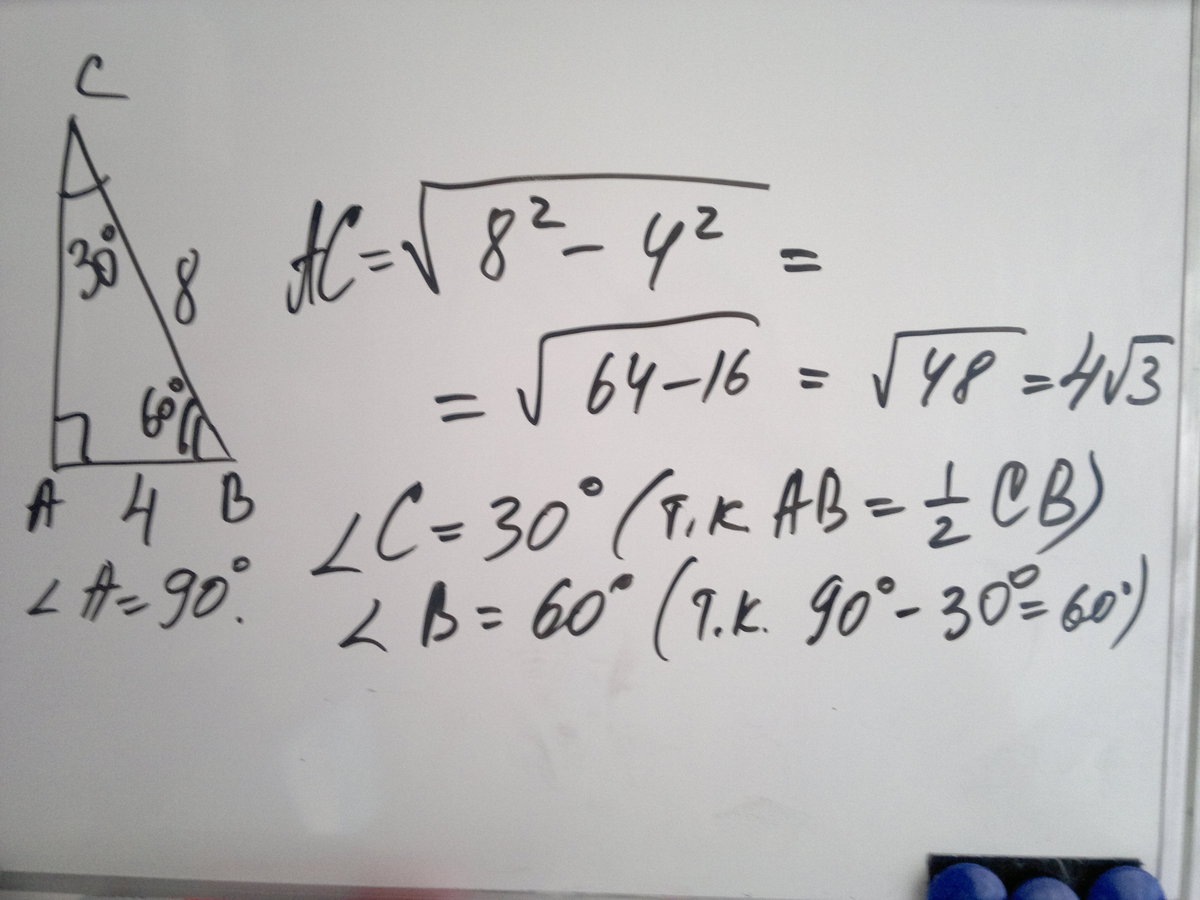 C
30°
8
60°
A 4 B
∠A=90°.
AC=√(8²-4²)=
=√(64-16)=√48=4√3
∠C=30°(т.к AB=½CB)
∠B=60°(т.к. 90°-30°=60°)